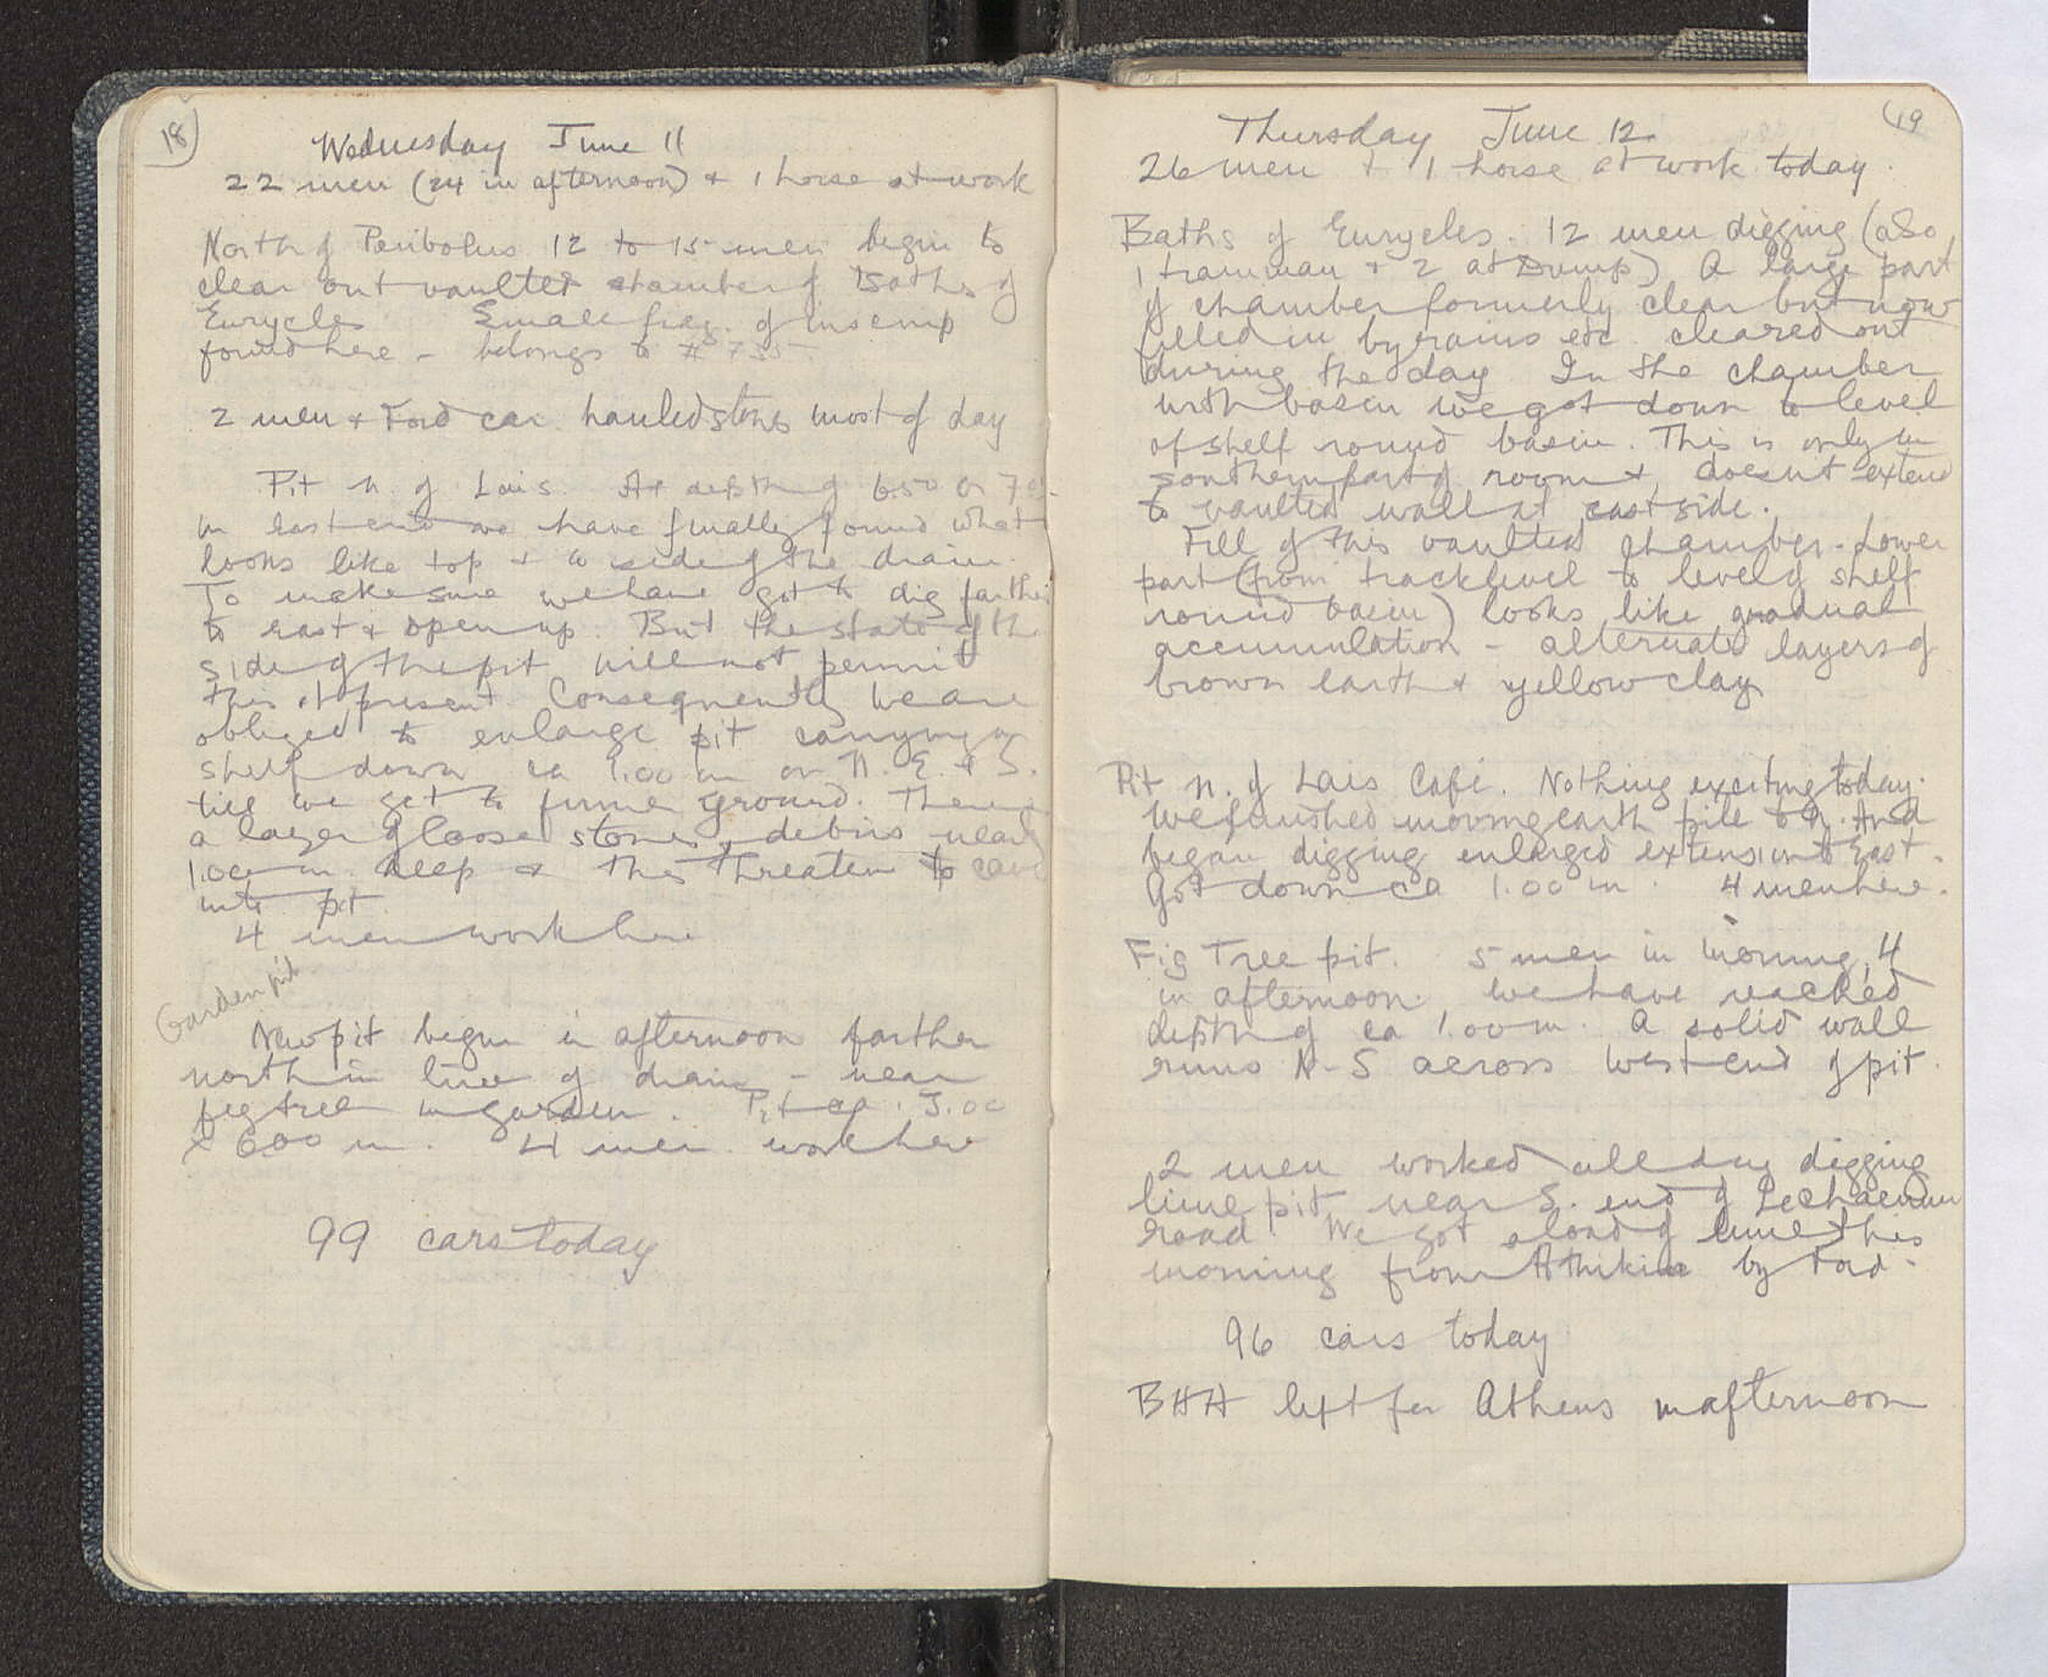 18
Wednesday June 11
22 men (24 in afternoon) + 1 horse at work
North of Peribolus 12 to 15 men begin to
clear out vaulted chamber of Baths of
Eurycles Small frag. of inscrip
found here - belongs to # 735
2 men + Ford car hauled stones most of day
Pit n. of Lais. At depth of 6.50 or 7
in east end we have finally found what
looks like top + a side of the drain.
To make sure we have got to dig farther
to east + open up. But the state of the
side of the pit will not permit
this at present. Consequently we are
obliged to enlarge pit carrying a
shelf down ca 1.00 m on N. E. + S.
till we get to firmer ground. There is
a layer of loose stones, debris nearly
1.00 m deep + this threatens to cave
into pit
4 men work here
Garden pit
New pit begun in afternoon farther
north in line of drain - near
fig tree in garden. Pit ca. 3.00
x 6.00 m. 4 men work here
99 cars today
19
Thursday June 12
26 men + 1 horse at work today.
Baths of Eurycles. 12 men digging (also
1 tramman + 2 at Dump) A large part
of chamber formerly clear but now
filled in by rains etc. cleared out
during the day In the chamber
with basin we got down to level
of shelf round basin. This is only in
southern part of room + doesn't extend
to vaulted wall at east side.
Fill of this vaulted chamber - Lower
part (from track level to level of shelf
round basin) looks like gradual
accumulation - alternate layers of
brown earth + yellow clay
Pit n. of Lais Café. Nothing exciting today.
We finished moving earth pile to N. And
began digging enlarged extension to East.
Got down ca 1.00 m. 4 men here.
Fig Tree pit. 5 men in morning, 4
in afternoon. We have reached
depth of ca 1.00 m. A solid wall
runs N-S across west end of pit.
2 men worked all day digging
lime pit near S. end of Lechaeum
road We got a load of lime this
morning from Athikia by Ford.
96 cars today
BHH left for Athens in afternoon